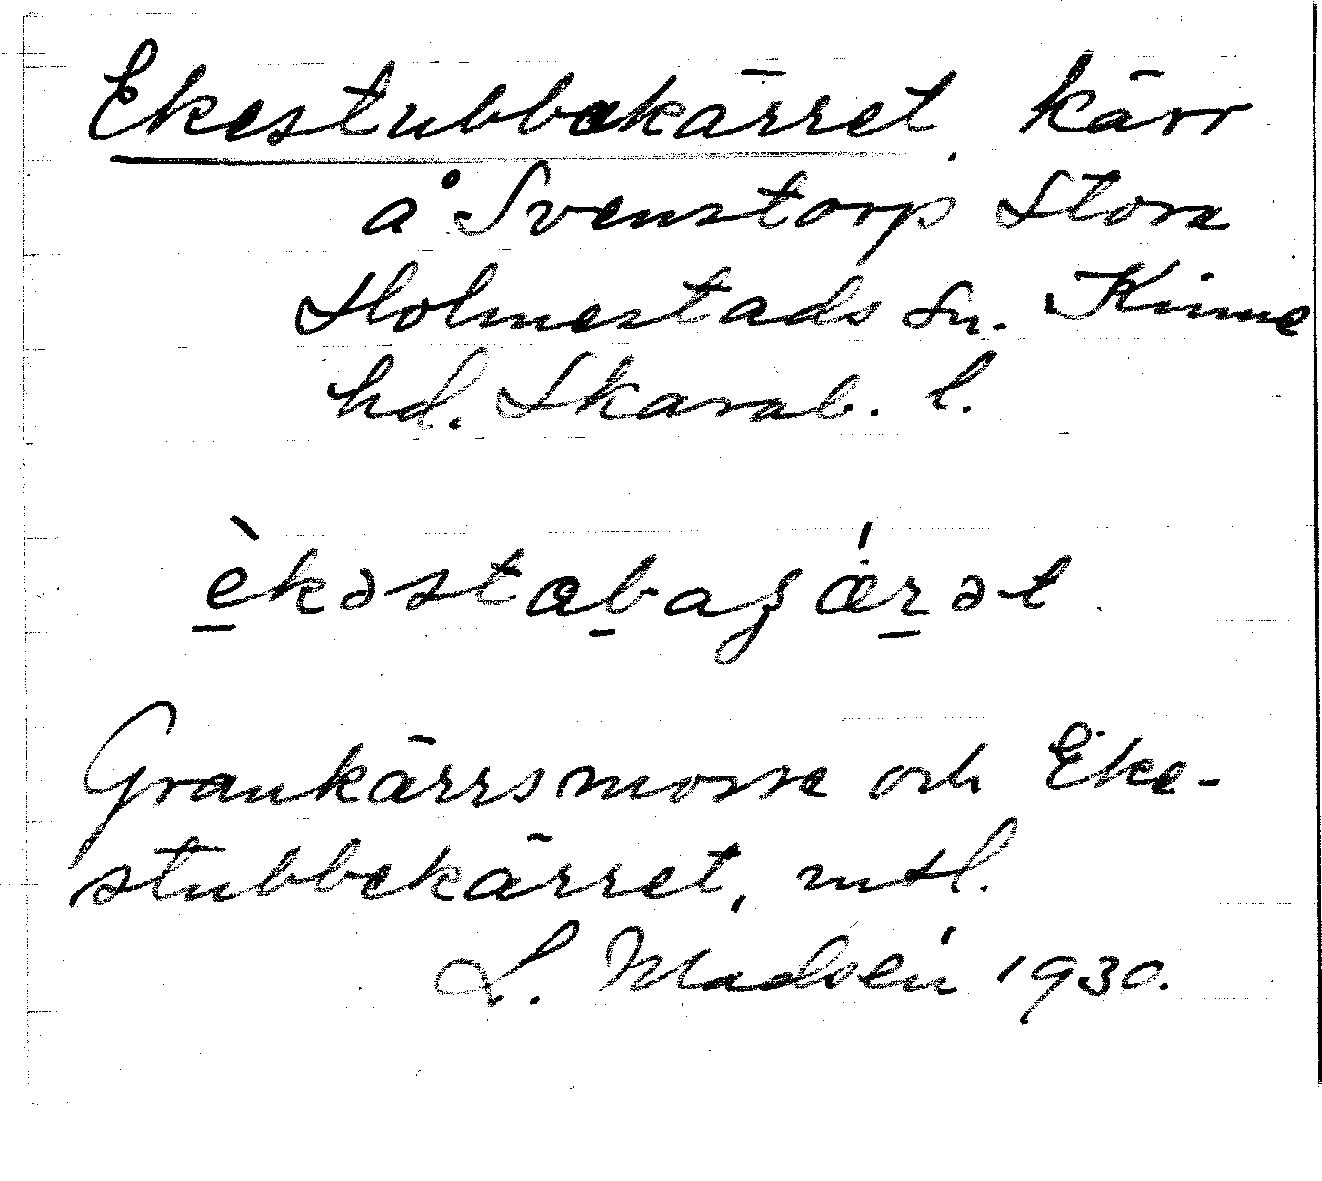 Ekestubbekärret, kärr
å Svenstorp Stora
Holmestads sn. Kinne
hd. Skarab. l.
èkəstabaʒǽrət
Grankärrsmosse och Eke-
stubbekärret, mtl.
L. Madsén 1930.